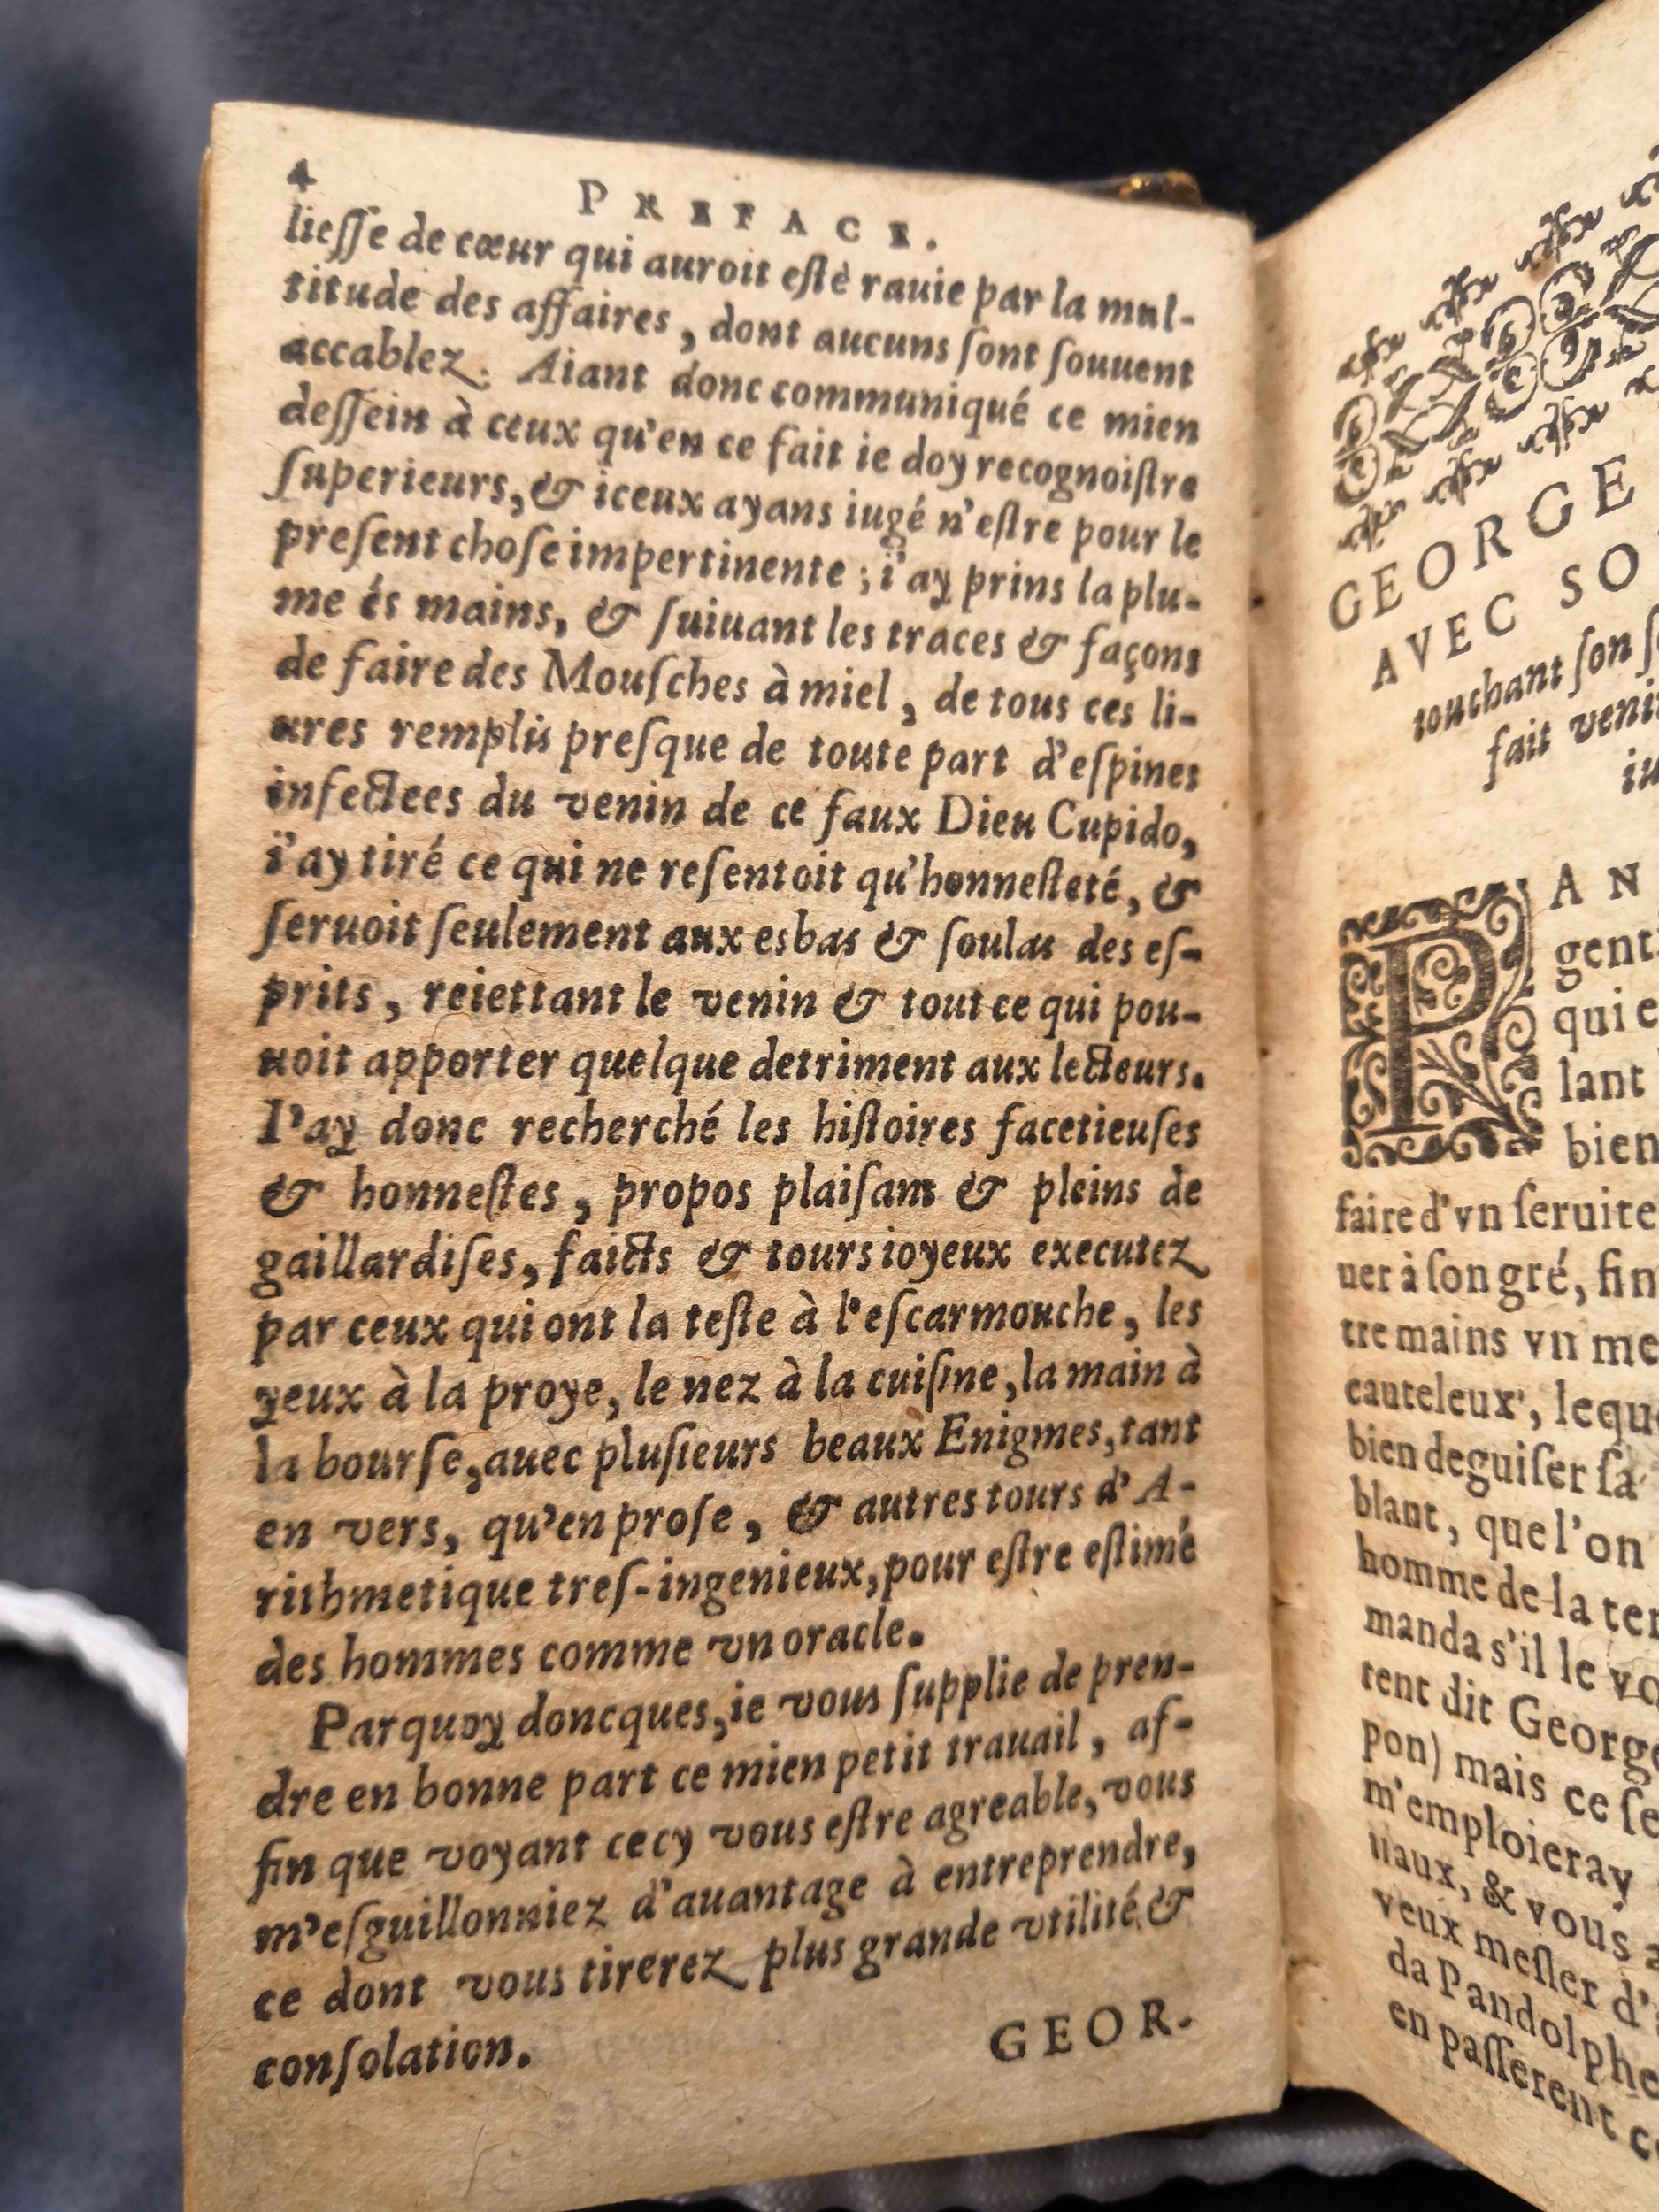 4
PREFACE.
lieſſe de cœur qui auroit eſtè rauie par la mul-
titude des affaires, dont aucuns ſont ſouuent
accablez. Aiant donc communiqué ce mien
deſſein à ceux qu'en ce fait ie doy recognoiſtre
ſuperieurs, & iceux ayans iugé n'eſtre pour le
preſent choſe impertinente; i'ay prins la plu-
me és mains, & ſuiuant les traces & façons
de faire des Mouſches à miel, de tous ces li-
ures remplis preſque de toute part d'eſpines
infectees du venin de ce faux Dieu Cupido,
i'ay tiré ce qui ne reſentoit qu'honneſteté, &
ſeruoit ſeulement aux esbas & ſoulas des eſ-
prits, reiettant le venin & tout ce qui pou-
uoit apporter quelque detriment aux lecteurs.
I'ay donc recherché les hiſtoires facetieuſes
& honneſtes, propos plaiſans & pleins de
gaillardiſes, faicts & tours ioyeux executez
par ceux qui ont la teſte à l'eſcarmouche, les
yeux à la proye, le nez à la cuiſine, la main à
la bourſe, auec pluſieurs beaux Enigmes, tant
en vers, qu'en proſe, & autres tours d'A-
rithmetique treſ-ingenieux, pour eſtre eſtimé
des hommes comme vn oracle.
Parquoy doncques, ie vous ſupplie de pren-
dre en bonne part ce mien petit trauail, af-
fin que voyant cecy vous eſtre agreable, vous
m'eſguillonniez d'auantage à entreprendre,
ce dont vous tirerez plus grande vtilité &
conſolation.
GEOR-
GEORGE
AVEC SO
touchant ſon ſ
fait veni
iu
PAN
gent
qui e
lant
bien
faire d'vn ſeruite
uer à ſon gré, fin
tre mains vn me
cauteleux, leque
bien deguiſer ſa
blant, que l'on
homme de la ter
manda s'il le vo
tent dit George
pon) mais ce ſe
m'emploieray
uaux, & vous a
veux meſler d'
da Pandolphe
en paſſerent c